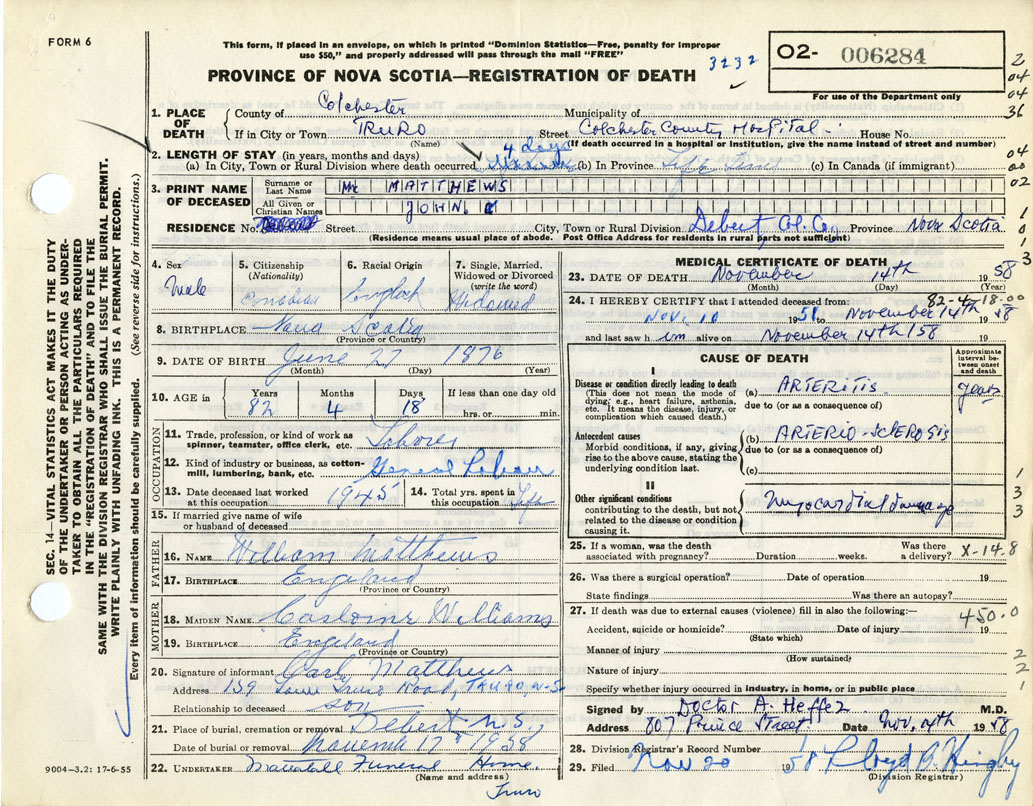 FORM 6
This form, if placed in an envelope, on which is printed "Dominion Statistics—Free, penalty for improper
use $50," and properly addressed will pass through the mail "FREE"
3232
02- 006284
PROVINCE OF NOVA SCOTIA—REGISTRATION OF DEATH
For use of the Department only
2
04
04
36
1. PLACE OF DEATH
County of Colchester Municipality of
If in City or Town TRURO Street Colchester County Hospital House No.
(Name) (If death occurred in a hospital or institution, give the name instead of street and number)
2. LENGTH OF STAY (in years, months and days) 4 days
(a) In City, Town or Rural Division where death occurred (b) In Province (c) In Canada (if immigrant)
04
00
02
3. PRINT NAME OF DECEASED
Surname or Last Name MATTHEWS
All Given or Christian Names JOHN. C
RESIDENCE No. Street City, Town or Rural Division Debert Col. Co. Province Nova Scotia
(Residence means usual place of abode. Post Office Address for residents in rural parts not sufficient)
1
0
1
3
4. Sex Male
5. Citizenship (Nationality) Canadian
6. Racial Origin English
7. Single, Married, Widowed or Divorced (write the word) Widowed
8. BIRTHPLACE Nova Scotia
(Province or Country)
9. DATE OF BIRTH June 27 1876
(Month) (Day) (Year)
10. AGE Years 82 Months 4 Days 18 If less than one day hrs. or min.
OCCUPATION
11. Trade, profession, or kind of work as spinner, teamster, office clerk, etc. Laborer
12. Kind of industry or business, as cotton-mill, lumbering, bank, etc. General
13. Date deceased last worked at this occupation 1945
14. Total yrs. spent in this occupation Life
15. If married give name of wife or husband of deceased
FATHER
16. NAME William Matthews
17. BIRTHPLACE England
(Province or Country)
MOTHER
18. MAIDEN NAME Caroline Williams
19. BIRTHPLACE England
(Province or Country)
20. Signature of informant Carl Matthews
Address 139 Lower Truro Road, TRURO, N-S
Relationship to deceased son
21. Place of burial, cremation or removal Debert N.S.
Date of burial or removal November 17th 1958
22. UNDERTAKER Mattatall Funeral Home
(Name and address)
Truro
MEDICAL CERTIFICATE OF DEATH
23. DATE OF DEATH November 14th 1958
(Month) (Day) (Year)
82-4-18.00
24. I HEREBY CERTIFY that I attended deceased from:
Nov. 10 1958 to November 14th 1958
and last saw him alive on November 14th/58
CAUSE OF DEATH
Approximate interval between onset and death
I
Disease or condition directly leading to death
(This does not mean the mode of dying; e.g., heart failure, asthenia, etc. It means the disease, injury, or complication which caused death.)
(a) ARTERITIS years
due to (or as a consequence of)
Antecedent causes
Morbid conditions, if any, giving rise to the above cause, stating the underlying condition last.
(b) ARTERIO-SCLEROSIS
due to (or as a consequence of)
(c)
II
Other significant conditions
contributing to the death, but not related to the disease or condition causing it.
myocardial damage
1
3
3
25. If a woman, was the death associated with pregnancy? Duration weeks. Was there a delivery? X-14.8
26. Was there a surgical operation? Date of operation 19
State findings Was there an autopsy?
27. If death was due to external causes (violence) fill in also the following:—
450.0
Accident, suicide or homicide? Date of injury 19
(State which)
Manner of injury 2
(How sustained)
Nature of injury 2
Specify whether injury occurred in industry, in home, or in public place 1
Signed by Doctor A. Heffez M.D.
Address 807 Prince Street Date Nov. 1958
28. Division Registrar's Record Number
29. Filed Nov 20 1958 Lloyd
(Division Registrar)
SEC. 14—VITAL STATISTICS ACT MAKES IT THE DUTY
OF THE UNDERTAKER OR PERSON ACTING AS UNDER-
TAKER TO OBTAIN ALL THE PARTICULARS REQUIRED
IN THE "REGISTRATION OF DEATH" AND TO FILE THE
SAME WITH THE DIVISION REGISTRAR WHO SHALL ISSUE THE BURIAL PERMIT.
WRITE PLAINLY WITH UNFADING INK. THIS IS A PERMANENT RECORD.
Every item of information should be carefully supplied. (See reverse side for instructions.)
9004—3.2: 17-6-55